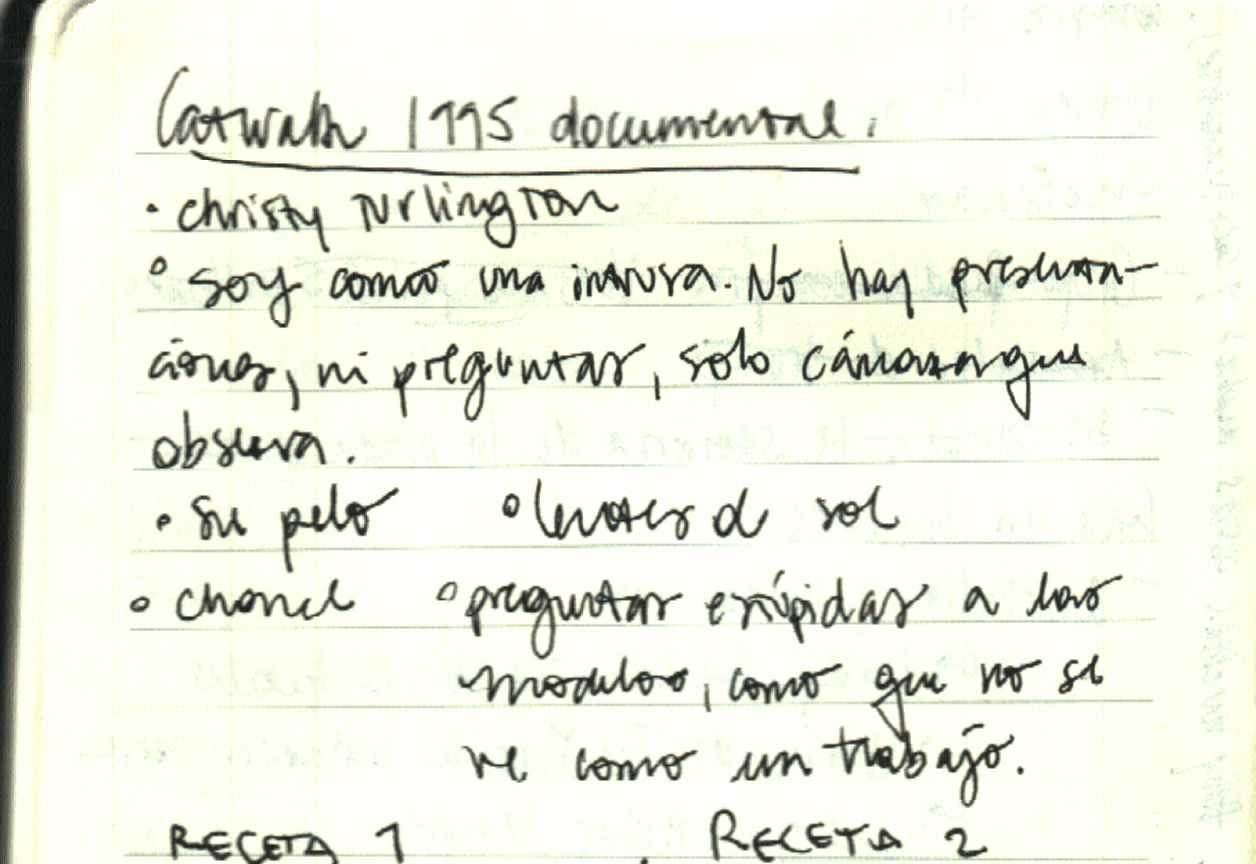 Catwalk 1995 documental.
• christy Turlington
° soy como una intrusa. No hay presenta-
ciones, ni preguntas, solo cámara que
observa.
• su pelo ° lentes d sol
° chanel ° preguntas estúpidas a las
modelos, como que no se
ve como un trabajo.
RECETA 1 RECETA 2